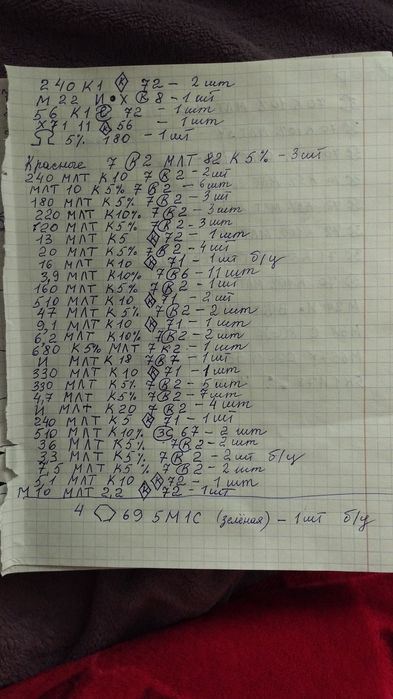 240 К1 К 72 – 2 шт
М 22 И • Х К 8 – 1 шт
56 К1 72 – 1 шт
11 К 56 – 1 шт
5% 180 – 1 шт
Красные 7 К 2 МЛТ 82 К 5% – 3 шт
240 МЛТ К 10 7 К 2 – 2 шт
МЛТ 10 К 5% 7 К 2 – 6 шт
180 МЛТ К 5% 7 К 2 – 3 шт
220 МЛТ К 10% 7 К 2 – 3 шт
720 МЛТ К 5% 7 К 2 – 3 шт
13 МЛТ К 5 К 72 – 1 шт
20 МЛТ К 5% 7 К 2 – 4 шт
16 МЛТ К 10 К 71 – 1 шт б/у
3,9 МЛТ К 10% 7 К 6 – 11 шт
160 МЛТ К 5% 7 К 2 – 1 шт
510 МЛТ К 10 К 71 – 2 шт
47 МЛТ К 5% 7 К 2 – 2 шт
9,1 МЛТ К 10 К 71 – 1 шт
6,2 МЛТ К 10% 7 К 2 – 2 шт
680 К 5% МЛТ 7 К 2 – 1 шт
И МЛТ К 18 7 К 7 – 1 шт
330 МЛТ К 10 К 71 – 1 шт
330 МЛТ К 5% 7 К 2 – 5 шт
4,7 МЛТ К 5% 7 К 2 – 7 шт
И МЛТ К 20 7 К 2 – 4 шт
240 МЛТ К 5 К 71 – 1 шт
510 МЛТ К 10% ЗС 67 – 2 шт
36 МЛТ К 5% 7 К 2 – 2 шт
33 МЛТ К 5% 7 К 2 – 2 шт б/у
7,5 МЛТ К 5% 7 К 2 – 2 шт
5,1 МЛТ К 10 К 72 – 1 шт
М 10 МЛТ 2,2 К 72 – 1 шт
4 69 5М1С (зелёная) – 1 шт б/у